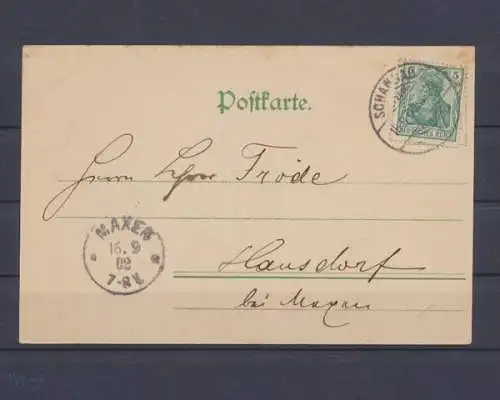 Postkarte.
SCHANDAU
5
Herrn Lehrer Tröde
MAXEN
16. 9
02
7-8 V.
Hausdorf
bei Maxen